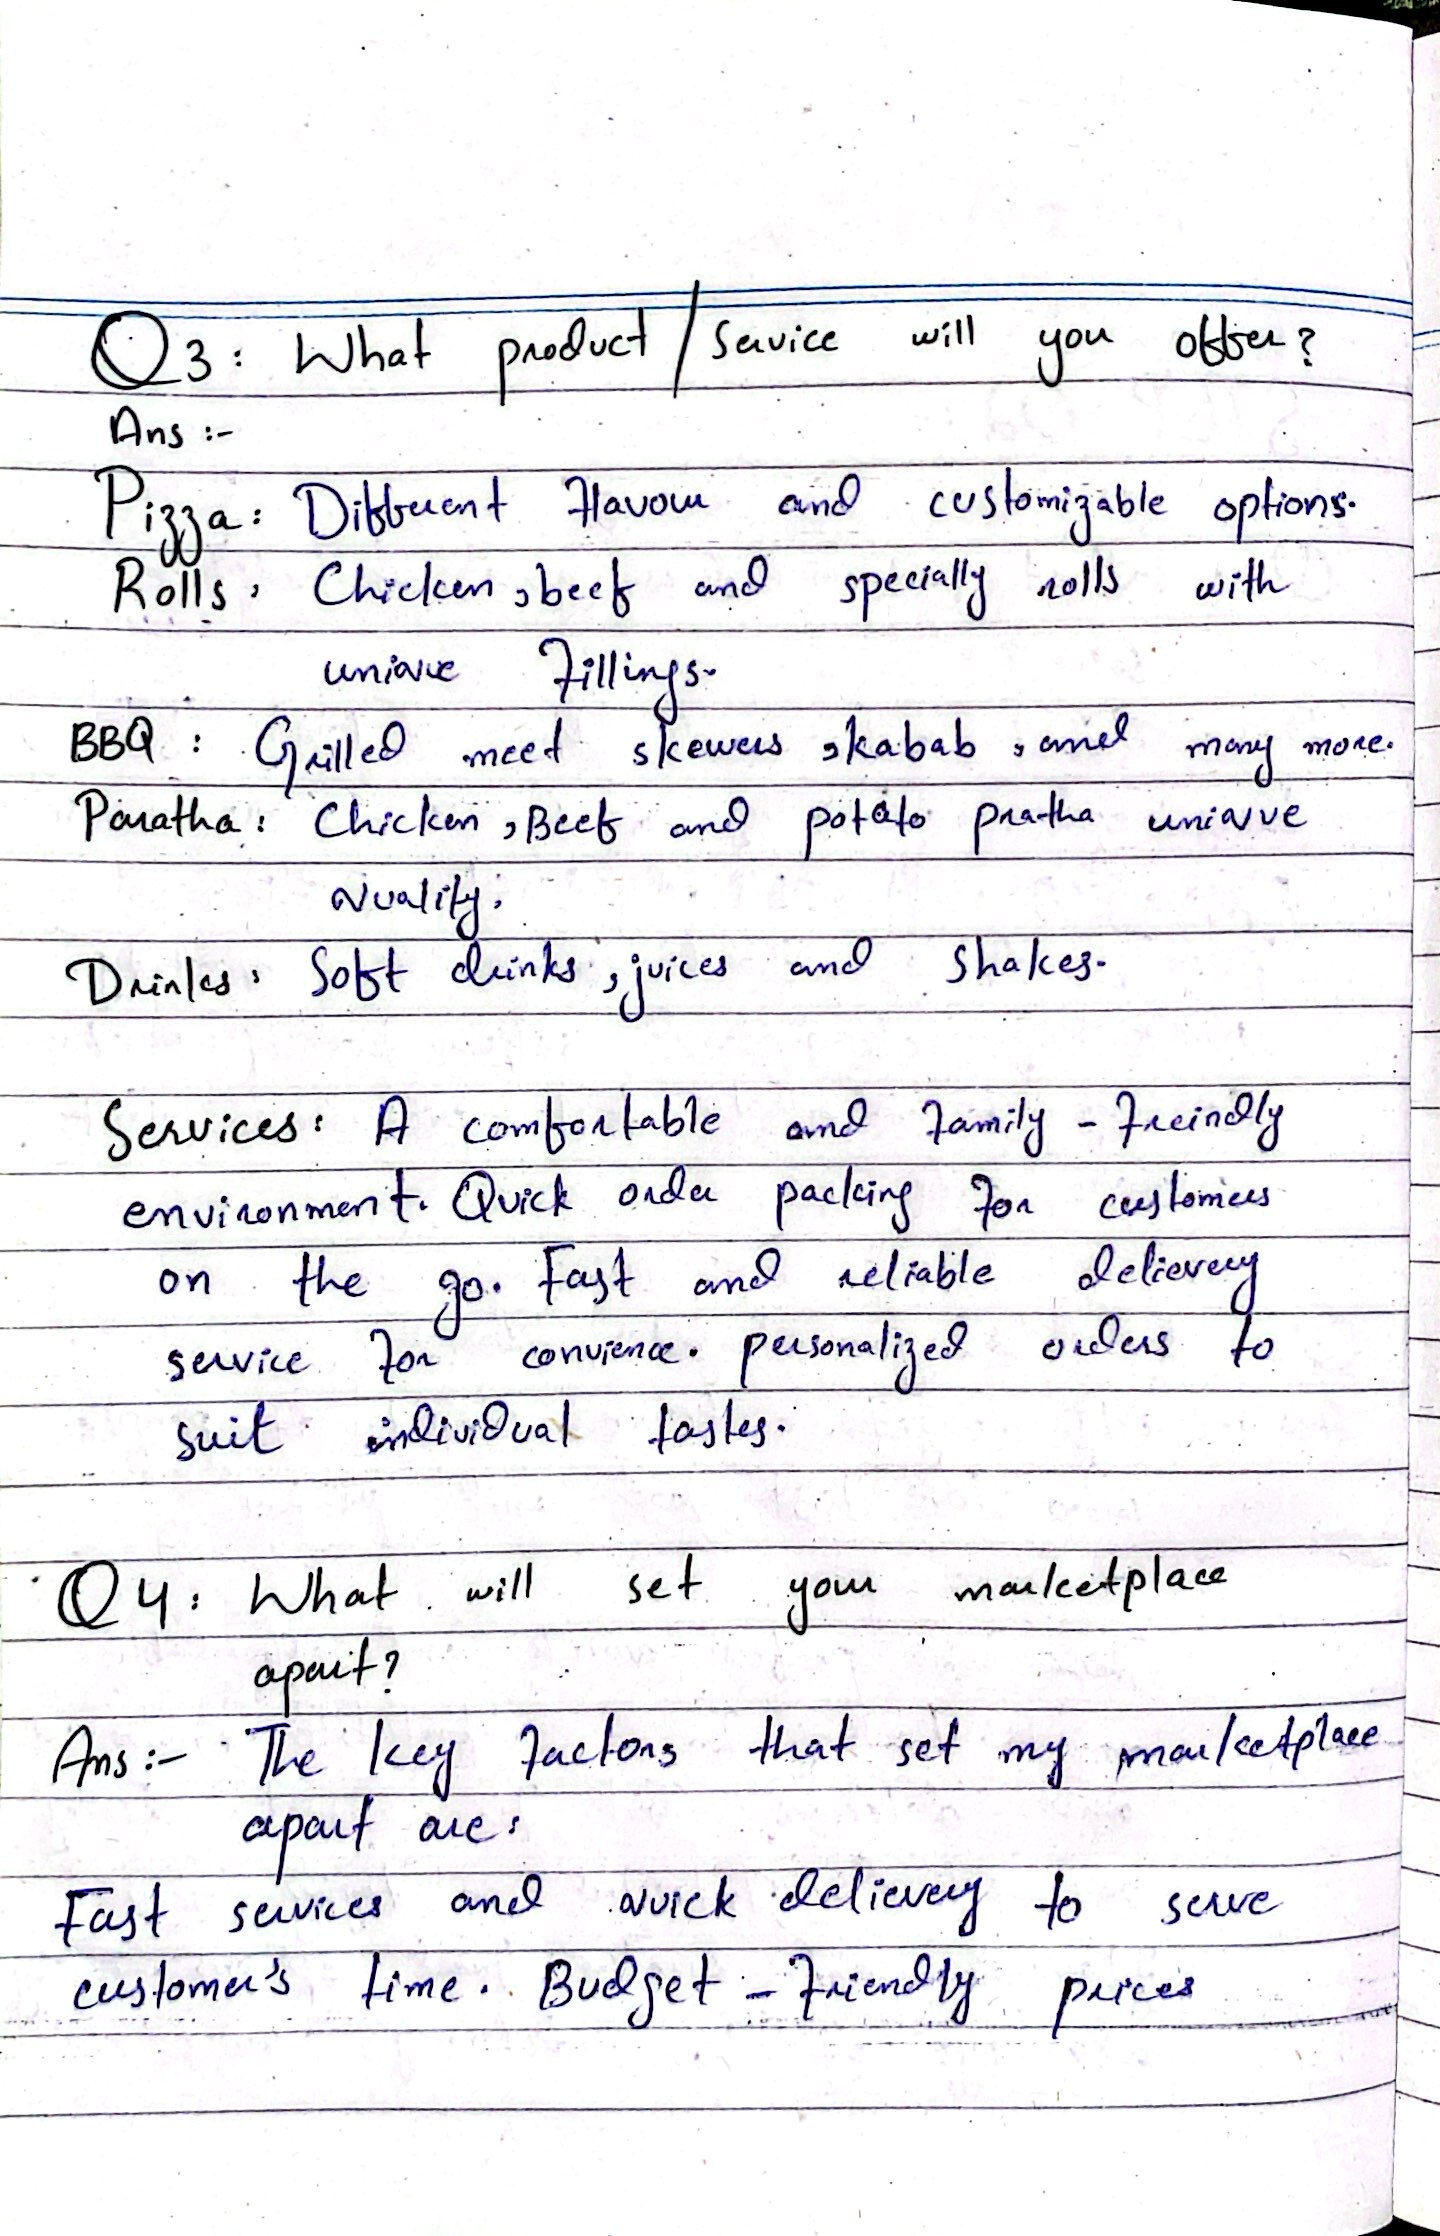 Q3: What product / Service will you offer?
Ans :-
Pizza: Different flavour and customizable options.
Rolls: Chicken, beef and specially rolls with
unique fillings.
BBQ : Grilled meet skewers, kabab, and many more.
Paratha: Chicken, Beef and potato pratha unique
quality.
Drinks: Soft drinks, juices and shakes.
Services: A comfortable and family - freindly
environment. Quick order packing for customers
on the go. Fast and reliable delievery
service for convience. personalized orders to
suit individual tastes.
Q4: What will set your marketplace
apart?
Ans :- The key factors that set my marketplace
apart are:
Fast services and quick delievery to serve
customer's time. Budget - friendly prices